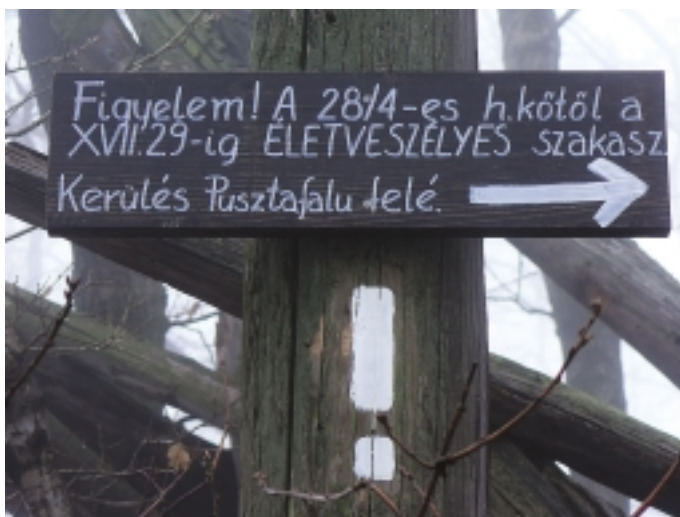 Figyelem! A 28/4-es h.kőtől a
XVII.29-ig ÉLETVESZÉLYES szakasz.
Kerülés Pusztafalu felé.